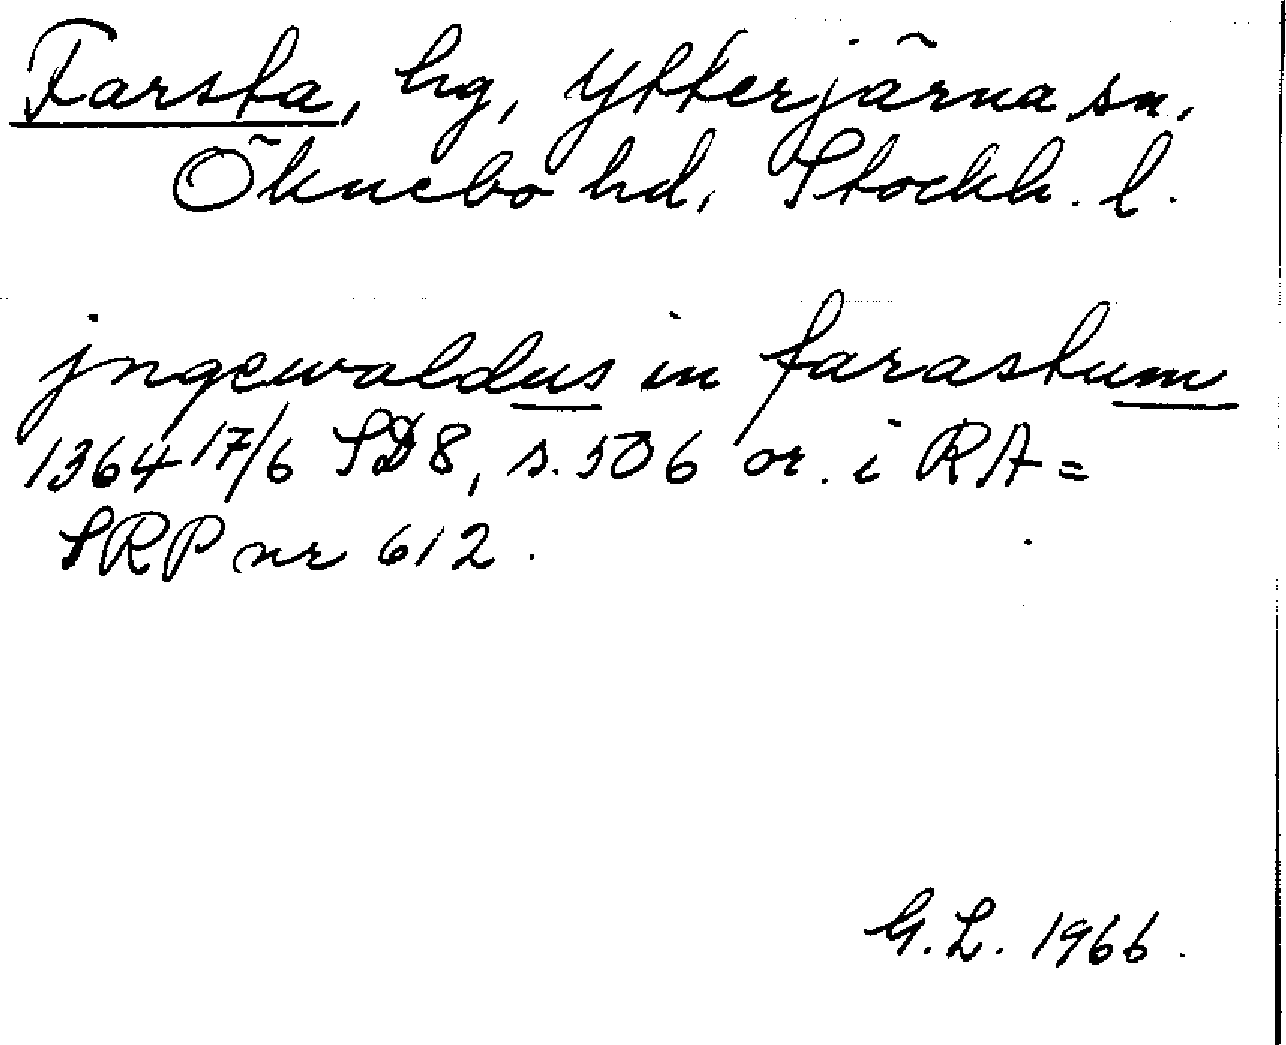 Farsta, hg, Ytterjärna sn.
Öknebo hd, Stockh. l.
jngewaldus in farastum
1364 17/6 SD8, s. 506 or. i RA =
SRP nr 612.
G.L. 1966.